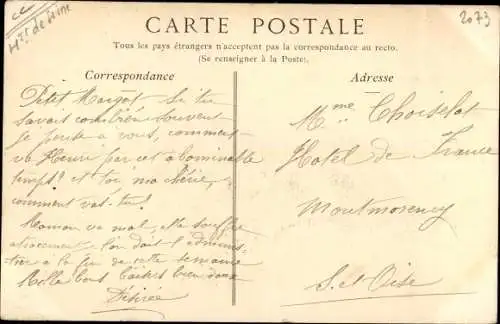 Hts de Seine
2073
CARTE POSTALE
Tous les pays étrangers n'acceptent pas la correspondance au recto.
(Se renseigner à la Poste).
Correspondance
Adresse
Petit Margot Si tu
savais combien souvent
je pense à vous, comment
va Henri par cet abominable
temps? et toi, ma chérie,
comment vas-tu?
Maman va mal, elle souffre
atrocement, l'on doit l'
à la fin de cette semaine
Mille bons baisers bien doux
Désirée
Mme Choiselat
Hotel de France
Montmorency
S. et Oise